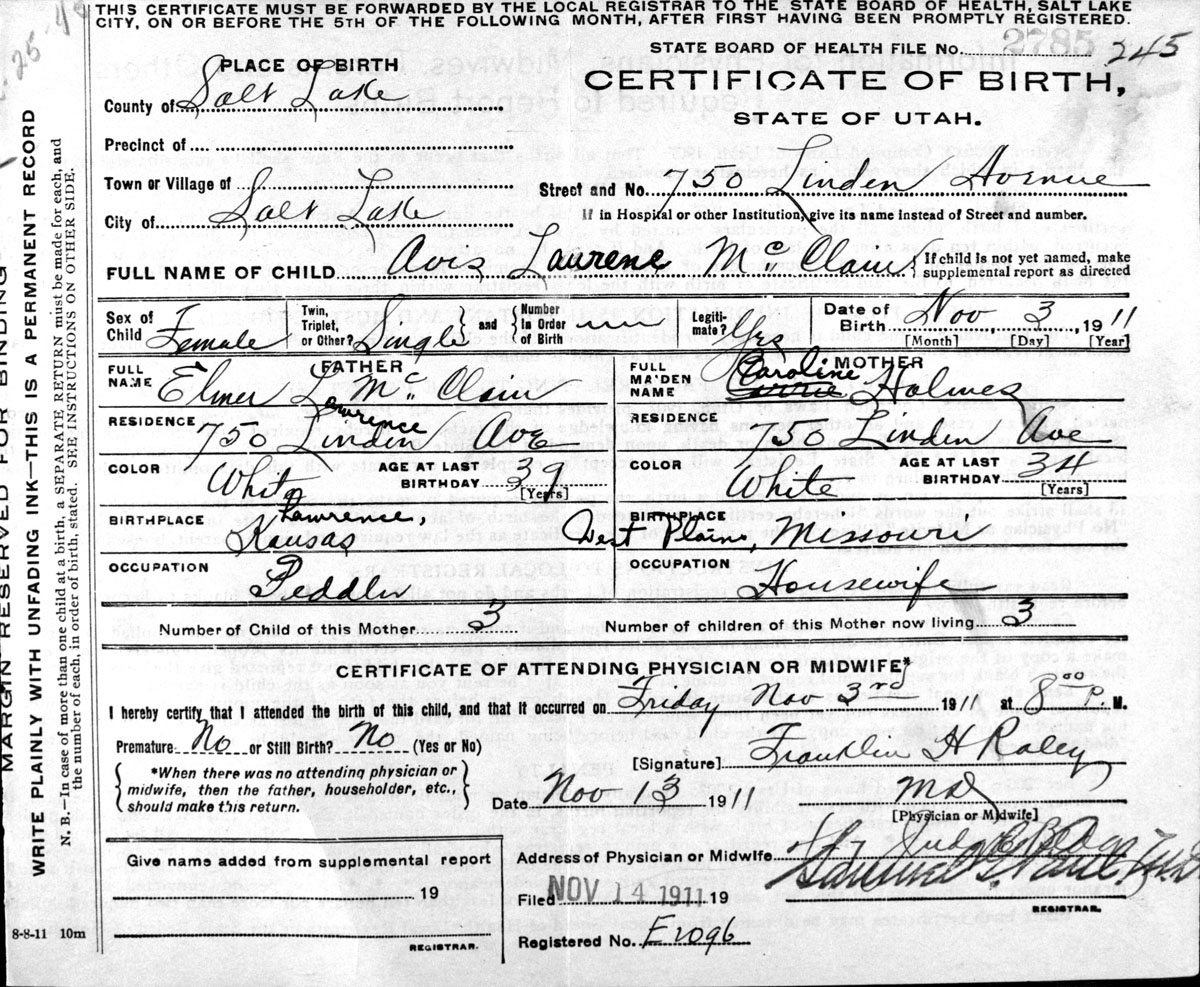 THIS CERTIFICATE MUST BE FORWARDED BY THE LOCAL REGISTRAR TO THE STATE BOARD OF HEALTH, SALT LAKE
CITY, ON OR BEFORE THE 5TH OF THE FOLLOWING MONTH, AFTER FIRST HAVING BEEN PROMPTLY REGISTERED.
STATE BOARD OF HEALTH FILE No. 2785 245
PLACE OF BIRTH
CERTIFICATE OF BIRTH,
STATE OF UTAH.
County of Salt Lake
Precinct of
Town or Village of
Street and No. 750 Linden Avenue
City of Salt Lake
If in Hospital or other Institution, give its name instead of Street and number.
FULL NAME OF CHILD Avis Laurene McClain { If child is not yet named, make
supplemental report as directed
Sex of Child Female
Twin, Triplet, or Other? Single
and { Number In Order of Birth
Legitimate? Yes
Date of Birth Nov 3, 1911
[Month] [Day] [Year]
FATHER
FULL NAME Elmer Lawrence McClain
MOTHER
FULL MAIDEN NAME Caroline Holmes
RESIDENCE 750 Linden Ave
RESIDENCE 750 Linden Ave
COLOR White
AGE AT LAST BIRTHDAY 39
[Years]
COLOR White
AGE AT LAST BIRTHDAY 34
[Years]
BIRTHPLACE Lawrence, Kansas
BIRTHPLACE West Plains, Missouri
OCCUPATION Peddler
OCCUPATION Housewife
Number of Child of this Mother 3
Number of children of this Mother now living 3
CERTIFICATE OF ATTENDING PHYSICIAN OR MIDWIFE*
I hereby certify that I attended the birth of this child, and that it occurred on Friday Nov 3rd 1911 at 8 00 P. M.
Premature No or Still Birth? No (Yes or No)
[Signature] Franklin H Raley
{ *When there was no attending physician or
midwife, then the father, householder, etc.,
should make this return. }
Date Nov 13 1911
MD
[Physician or Midwife]
Give name added from supplemental report
19
REGISTRAR.
Address of Physician or Midwife Judge Bldg
Filed NOV 14 1911 19
REGISTRAR.
Registered No. E1096
8-8-11 10m
MARGIN RESERVED FOR BINDING
WRITE PLAINLY WITH UNFADING INK—THIS IS A PERMANENT RECORD
N. B.—In case of more than one child at a birth, a SEPARATE RETURN must be made for each, and
the number of each, in order of birth, stated. SEE INSTRUCTIONS ON OTHER SIDE.